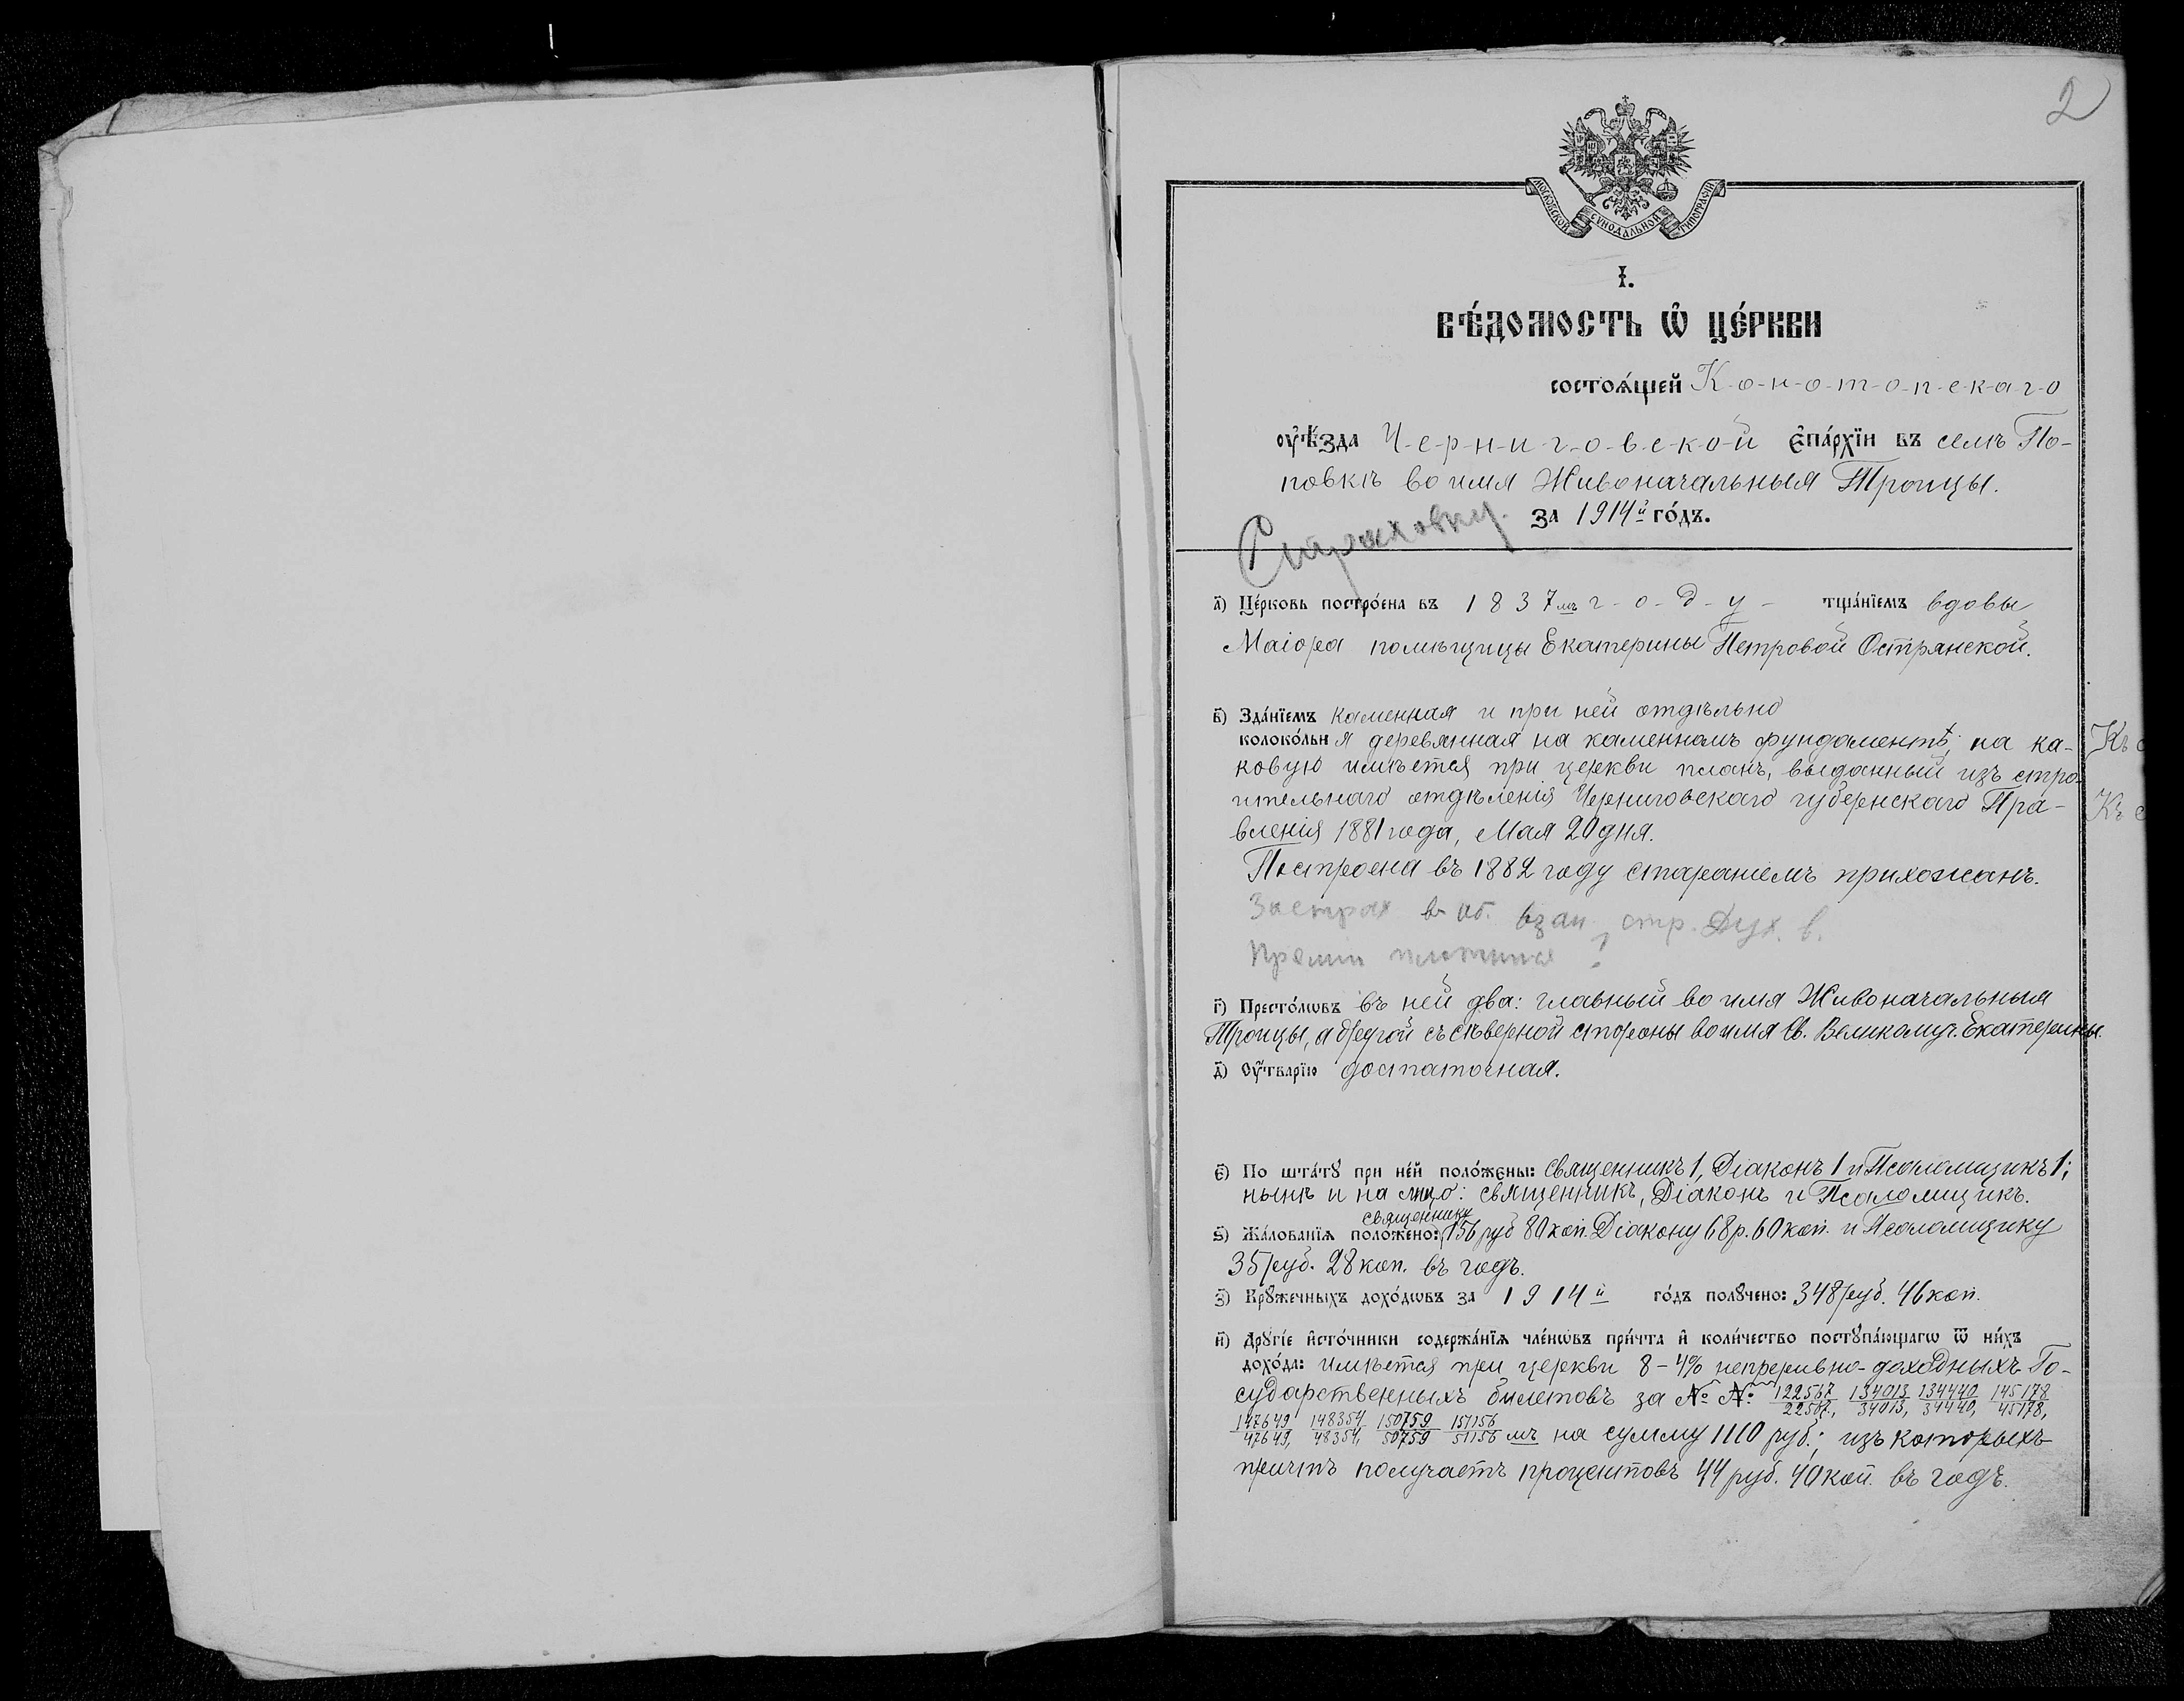 2
МОСКОВСКОЙ СѴНОДАЛЬНОЙ ТИПОГРАФІИ
І.
ВѢ́ДОМОСТЬ Ѡ҆ ЦЕ́РКВИ
состоѧ́щей К-о-н-о-т-о-п-с-к-а-г-о
оу҆ѣ́зда Ч-е-р-н-и-г-о-в-с-к-о-й є҆па́рхїи въ селѣ По-
повкѣ во имя Живоначальныя Троицы.
за 1914й го́дъ.
Страховку.
а҃) Це́рковь постро́ена въ 1837мъ г-о-д-у- тща́нїемъ вдовы
Маіора помѣщицы Екатерины Петровой Острянской.
в҃) Зда́нїемъ каменная и при ней отдѣльно
колоко́льня деревянная на каменномъ фундаментѣ, на ка-
ковую имѣется при церкви планъ, выданный изъ стро-
ительнаго отдѣленія Черниговскаго губернскаго Пра-
вленія 1881 года, Мая 20 дня.
Построена въ 1882 году стараніемъ прихожанъ.
Застрах в об. взаи. стр. Дух. в.
г҃) Престо́лѡвъ въ ней два: главный во имя Живоначальныя
Троицы, а другой съ сѣверной стороны во имя Св. Великомуч. Екатерины.
д҃) Оу҆́тварїю достаточная.
є҃) По шта́тꙋ при не́й поло́жены: Священникъ 1, Діаконъ 1 и Псаломщикъ 1;
нынѣ и на лицо: священникъ, Діаконъ и Псаломщикъ.
священнику
ѕ҃) Жа́лованїѧ положено: 156 руб 80 коп. Діакону 68 р. 60 коп. и Псаломщику
35 руб. 28 коп. въ годъ.
з҃) Крꙋжечныхъ дохо́дѡвъ за 1914й го́дъ полꙋчено: 348 руб. 46 коп.
и҃) Дрꙋгі́е и҆сто́чники содержа́нїѧ чле́нѡвъ при́чта и҆ коли́чество постꙋпа́ющагѡ ѿ ни́хъ
дохо́да: имѣется при церкви 8 - 4% непрерывно-доходныхъ Го-
сударственныхъ билетовъ за № № 122567/22567, 134013/34013, 134440/34440, 145178/45178,
147649/47649, 148354/48354, 150759/50759 151156/51156 мъ на сумму 1110 руб.; изъ которыхъ
причтъ получаетъ процентовъ 44 руб. 40 коп. въ годъ.